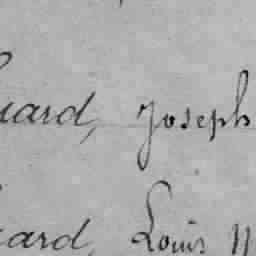 uard, Joseph
uard, Louis